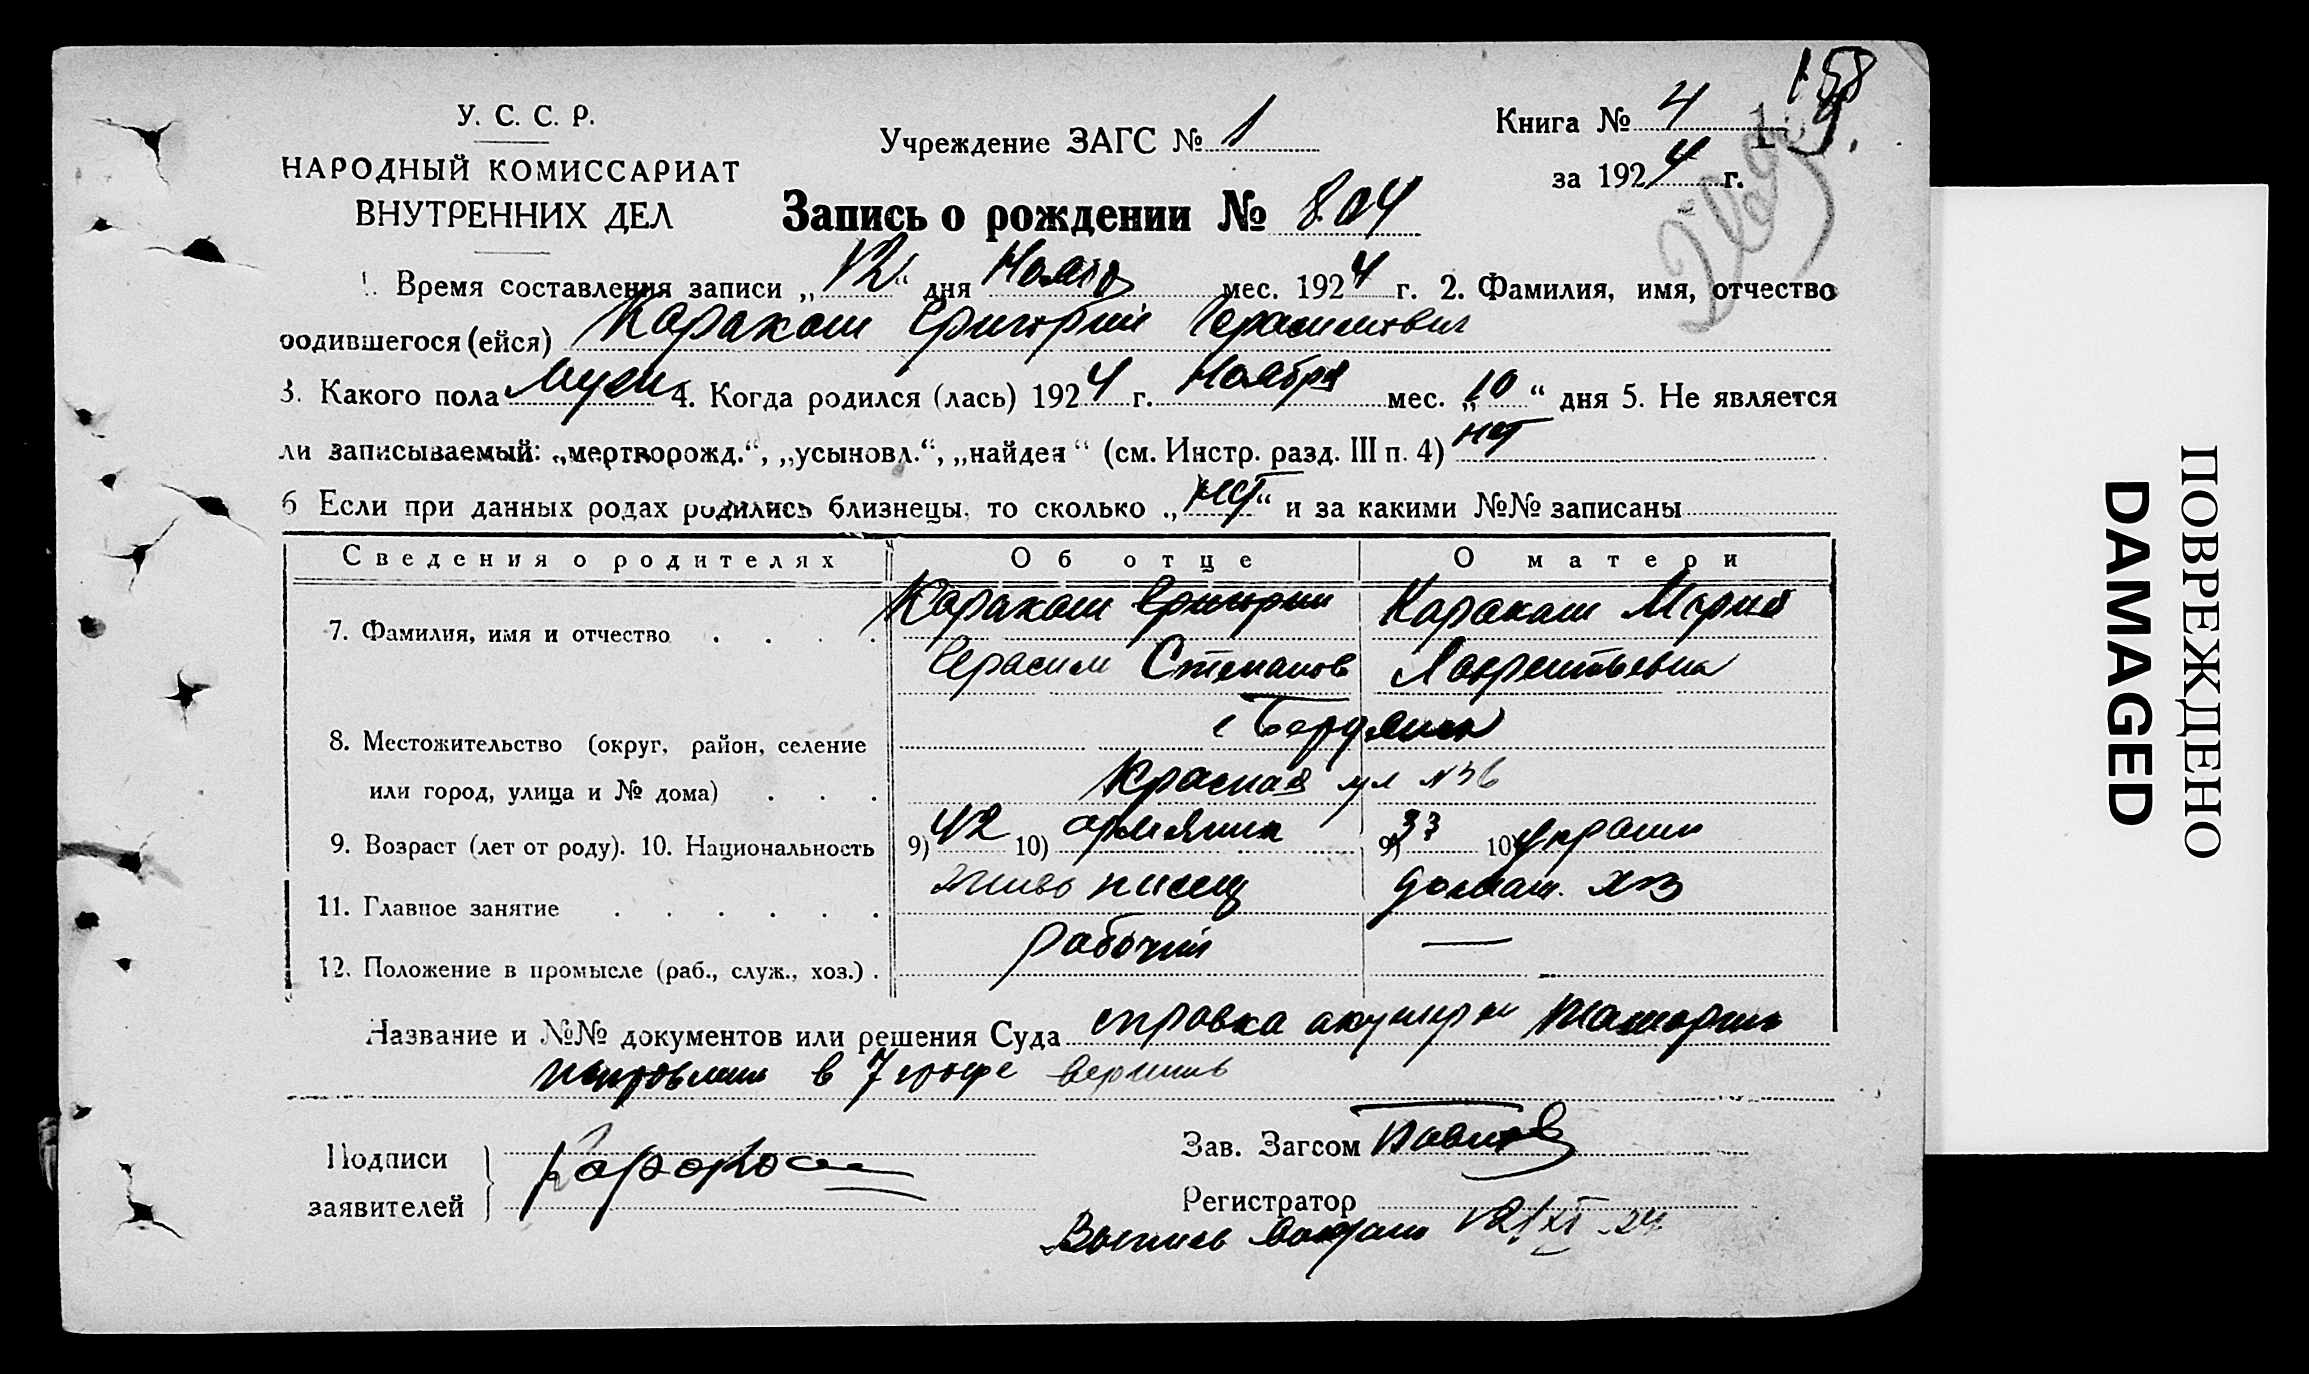 158
У. С. С. Р.
НАРОДНЫЙ КОМИССАРИАТ
ВНУТРЕННИХ ДЕЛ
Учреждение ЗАГС № 1
Книга № 4
за 1924 г.
Запись о рождении № 804
1. Время составления записи „12“ дня Ноября мес. 1924 г. 2. Фамилия, имя, отчество
родившегося (ейся) Каракаш Григорий Герасимович
3. Какого пола муж 4. Когда родился (лась) 1924 г. Ноября мес. „10“ дня 5. Не является
ли записываемый: „мертворожд.“, „усыновл.“, „найден“ (см. Инстр. разд. III п. 4) нет
6 Если при данных родах родились близнецы, то сколько „нет“ и за какими №№ записаны
Сведения о родителях Об отце О матери
7. Фамилия, имя и отчество Каракаш Григорий Каракаш Мария
Герасим Степанов Лаврентьевна
8. Местожительство (округ, район, селение г Бердянск
или город, улица и № дома) Красная ул №36
9. Возраст (лет от роду). 10. Национальность 9) 42 10) армянин 9) 33 10) украин
11. Главное занятие живописец домаш. хоз
12. Положение в промысле (раб., служ., хоз.) рабочий —
Название и №№ документов или решения Суда справка акушерки
в 7 графе
Подписи
заявителей
Каракаш
Зав. Загсом
Регистратор
Выпись выдана 12/XI-24
ПОВРЕЖДЕНО
DAMAGED